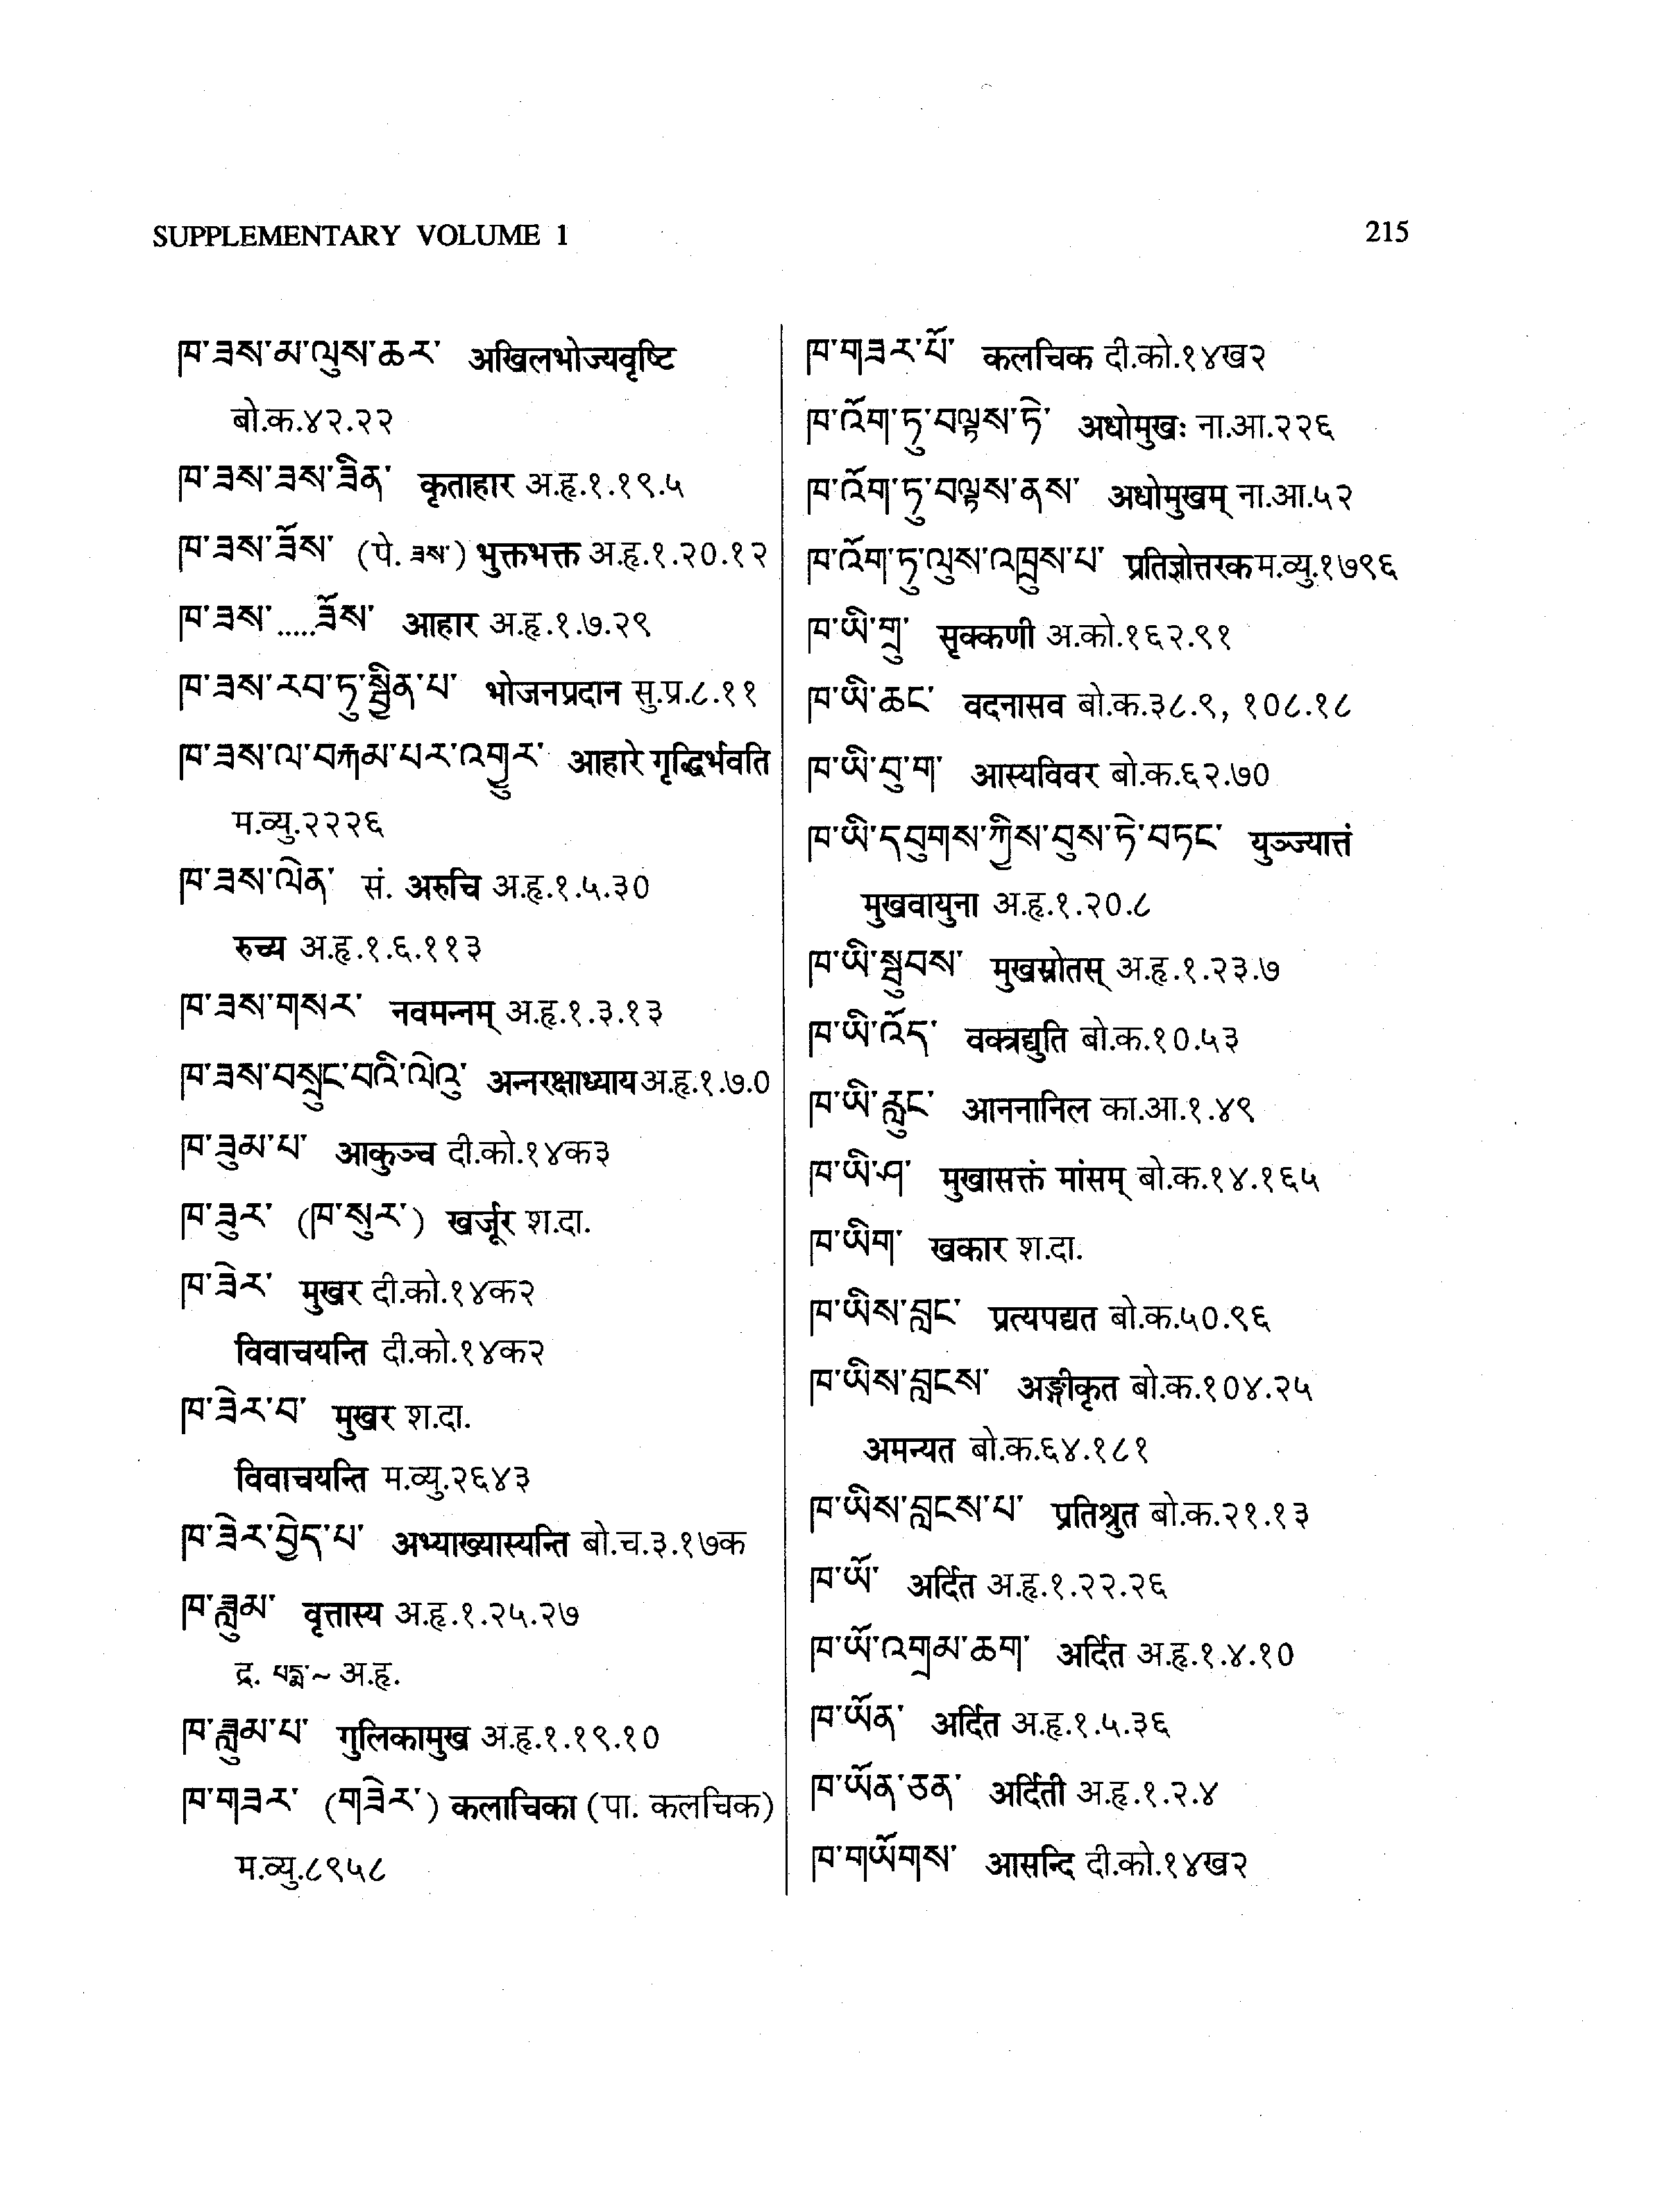 SUPPLEMENTARY VOLUME 1
215
ཁ་ཟས་མ་ལུས་ཆར་ अखिलभोज्यवृष्टि
बो.क.४२.२२
ཁ་ཟས་ཟས་ཟིན་ कृताहार अ.हृ.१.१९.५
ཁ་ཟས་ཟོས་ (पे. ཟས་) भुक्तभक्त अ.हृ.१.२०.१२
ཁ་ཟས་.....ཟོས་ आहार अ.हृ.१.७.२९
ཁ་ཟས་རབ་ཏུ་སྦྱིན་པ་ भोजनप्रदान सु.प्र.८.११
ཁ་ཟས་ལ་བརྐམ་པར་འགྱུར་ आहारे गृद्धिर्भवति
म.व्यु.२२२६
ཁ་ཟས་ལེན་ सं. अरुचि अ.हृ.१.५.३०
रुच्य अ.हृ.१.६.११३
ཁ་ཟས་གསར་ नवमन्नम् अ.हृ.१.३.१३
ཁ་ཟས་བསྲུང་བའི་ལེའུ་ अन्नरक्षाध्याय अ.हृ.१.७.०
ཁ་ཟུམ་པ་ आकुञ्च दी.को.१४क३
ཁ་ཟུར་ (ཁ་སུར་) खर्जूर श.दा.
ཁ་ཟེར་ मुखर दी.को.१४क२
विवाचयन्ति दी.को.१४क२
ཁ་ཟེར་བ་ मुखर श.दा.
विवाचयन्ति म.व्यु.२६४३
ཁ་ཟེར་བྱེད་པ་ अभ्याख्यास्यन्ति बो.च.३.१७क
ཁ་ཟླུམ་ वृत्तास्य अ.हृ.१.२५.२७
द्र. པདྨ་~ अ.हृ.
ཁ་ཟླུམ་པ་ गुलिकामुख अ.हृ.१.१९.१०
ཁ་གཟར་ (གཟེར་) कलाचिका (पा. कलचिक)
म.व्यु.८९५८
ཁ་གཟར་པོ་ कलचिक दी.को.१४ख२
ཁ་འོག་ཏུ་བལྟས་ཏེ་ अधोमुखः ना.आ.२२६
ཁ་འོག་ཏུ་བལྟས་ནས་ अधोमुखम् ना.आ.५२
ཁ་འོག་ཏུ་ལུས་འཁྲུས་པ་ प्रतिज्ञोत्तरक म.व्यु.१७९६
ཁ་ཡི་གྲུ་ सृक्कणी अ.को.१६२.९१
ཁ་ཡི་ཆང་ वदनासव बो.क.३८.९, १०८.१८
ཁ་ཡི་བུ་ག་ आस्यविवर बो.क.६२.७०
ཁ་ཡི་དབུགས་ཀྱིས་བུས་ཏེ་བཏང་ युञ्ज्यात्तं
मुखवायुना अ.हृ.१.२०.८
ཁ་ཡི་སྦུབས་ मुखस्रोतस् अ.हृ.१.२३.७
ཁ་ཡི་འོད་ वक्त्रद्युति बो.क.१०.५३
ཁ་ཡི་རླུང་ आननानिल का.आ.१.४९
ཁ་ཡི་ཤ་ मुखासक्तं मांसम् बो.क.१४.१६५
ཁ་ཡིག་ खकार श.दा.
ཁ་ཡིས་བླང་ प्रत्यपद्यत बो.क.५०.९६
ཁ་ཡིས་བླངས་ अङ्गीकृत बो.क.१०४.२५
अमन्यत बो.क.६४.१८१
ཁ་ཡིས་བླངས་པ་ प्रतिश्रुत बो.क.२१.१३
ཁ་ཡོ་ अर्दित अ.हृ.१.२२.२६
ཁ་ཡོ་འགྲམ་ཆག་ अर्दित अ.हृ.१.४.१०
ཁ་ཡོན་ अर्दित अ.हृ.१.५.३६
ཁ་ཡོན་ཅན་ अर्दिती अ.हृ.१.२.४
ཁ་གཡོགས་ आसन्दि दी.को.१४ख२